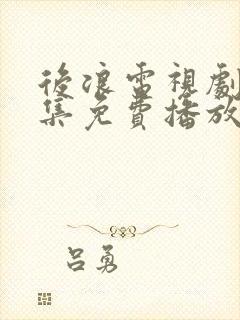 後浪雷視劇
集免費播放
呂勇